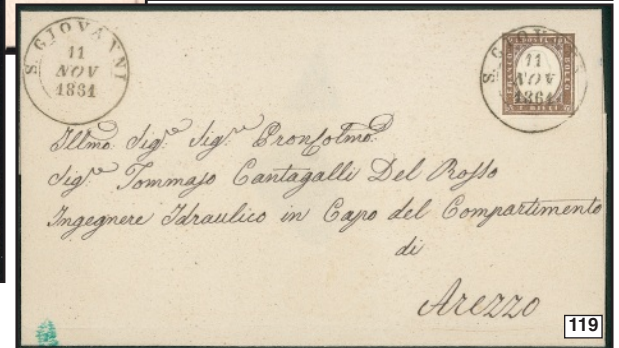 S. GIOVANNI
11
NOV
1861
S. GIOVANNI
11
NOV
1861
FRANCO BOLLO
Illmo Sigre Sigre Pron Colmo
Sigre Tommaso Cantagalli Del Rosso
Ingegnere Idraulico in Capo del Compartimento
di
Arezzo
119